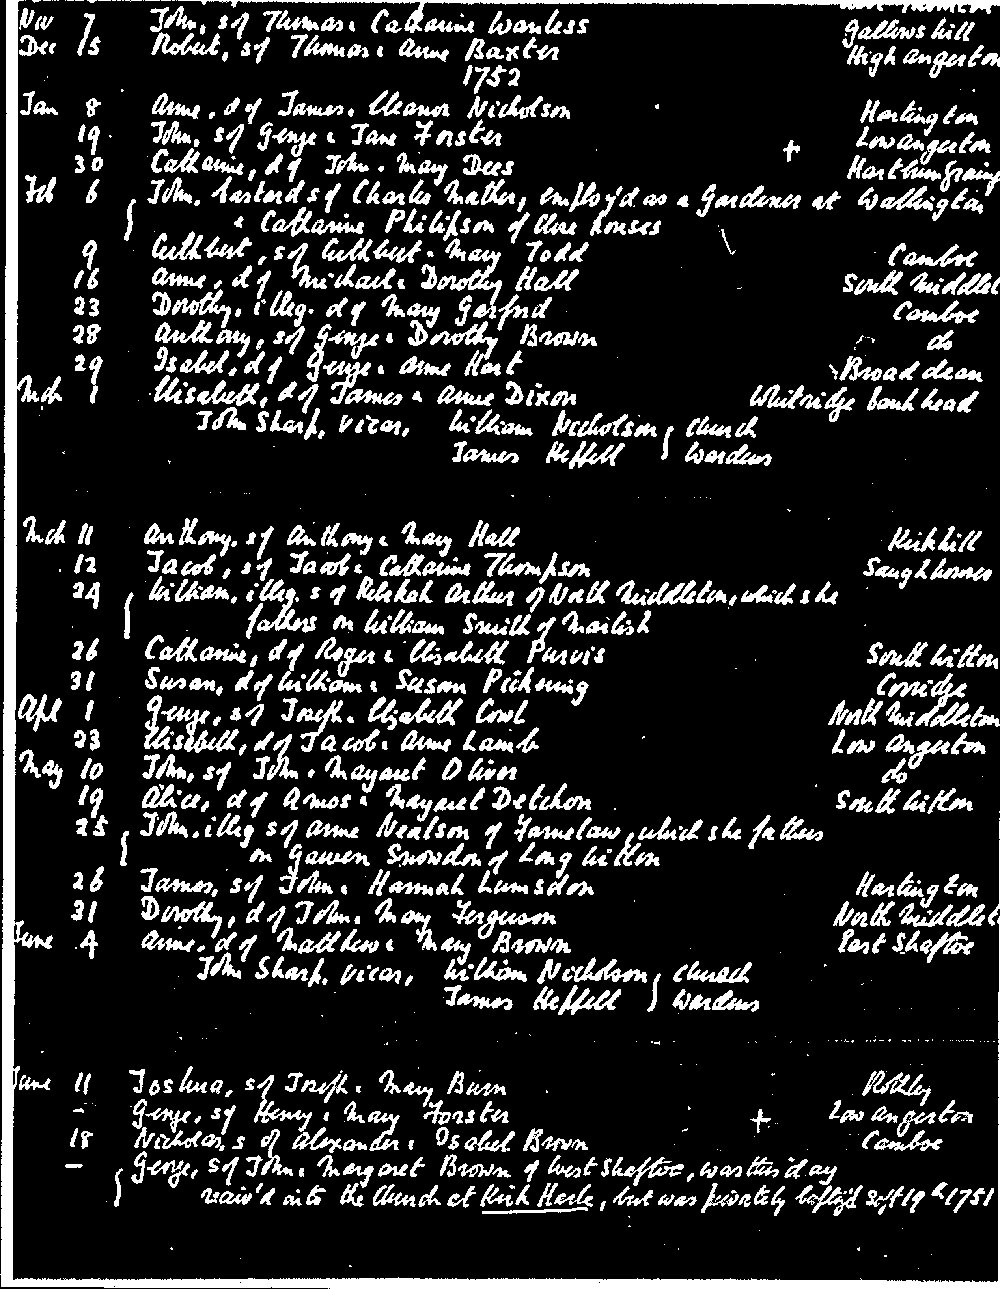 Nov 7 John, s of Thomas & Catharine Wanless Gallows hill
Dec 15 Robert, s of Thomas & Anne Baxter High angerton
1752
Jan 8 Anne, d of James & Eleanor Nicholson Hartington
19 John, s of George & Jane Forster + Low angerton
30 Catharine, d of John & Mary Dees Hartburngrainge
Feb 6 John, bastard s of Charles Mather, employ'd as a Gardener at Wallington
& Catharine Philipson of Close houses
9 Cuthbert, s of Cuthbert & Mary Todd Camboe
16 Anne, d of Michael & Dorothy Hall South Middlet
23 Dorothy, illeg. d of Mary Garford Camboe
28 Anthony, s of George & Dorothy Brown do
29 Isabel, d of George & Anne Hart Broad dean
Mch 1 Elisabeth, d of James & Anne Dixon Whitridge bank head
John Sharp, vicar, William Nicholson } Church
James Heffell } Wardens
Mch 11 Anthony, s of Anthony & Mary Hall Kirkhill
12 Jacob, s of Jacob & Catharine Thompson Saughhouses
24 William, illeg. s of Rebekah Arthur of North Middleton, which she
fathers on William Smith of
26 Catharine, d of Roger & Elisabeth Purvis South Witton
31 Susan, d of William & Susan Pickering Corridge
Apl 1 George, s of Joseph & Elizabeth Cowl North Middleton
23 Elisabeth, d of Jacob & Anne Lamb Low Angerton
May 10 John, s of John & Margaret Oliver do
19 Alice, d of Amos & Margaret Detchon South Witton
25 John, illeg s of Anne Nealson of Farnelaw, which she fathers
on Gawen Snowdon of Long Witton
26 James, s of John & Hannah Lumsdon Hartington
31 Dorothy, d of John & Mary Ferguson North Middlet
June 4 Anne, d of Matthew & Mary Brown East Shaftoe
John Sharp, vicar, William Nicholson } Church
James Heffell } Wardens
June 11 Joshua, s of Joseph & Mary Burn Rothley
– George, s of Henry & Mary Forster + Low angerton
18 Nicholas, s of Alexander & Isabel Brown Camboe
– George, s of John & Margaret Brown of West Shaftoe, was this day
receiv'd into the Church at Kirk Harle, but was privately baptiz'd Sept 19th 1751